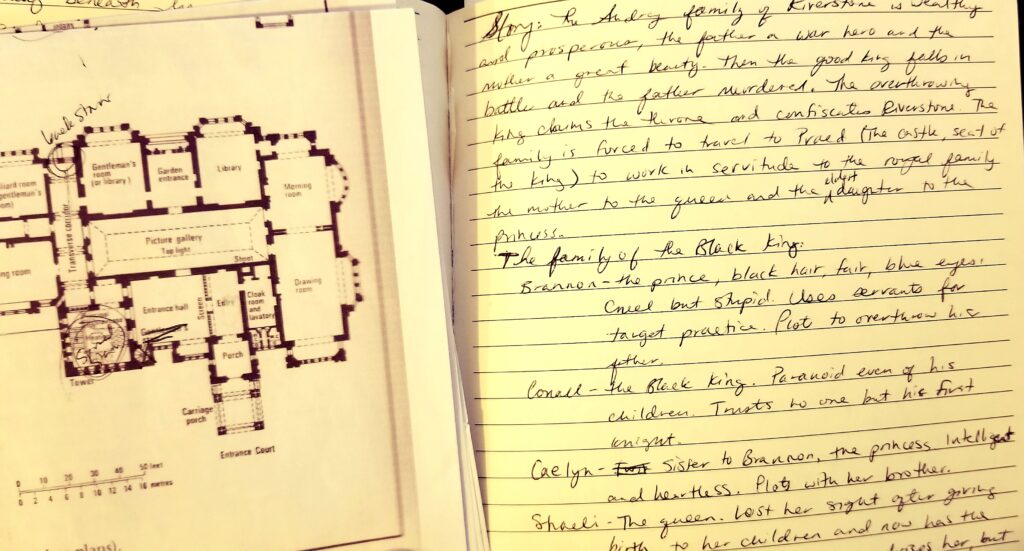 beneath
back stair
Gentleman's
room
(or library)
Garden
entrance
Library
Morning
room
lliard room
gentleman's
om)
Transverse corridor
Picture gallery
Top light
ng room
Entrance hall
Screen
Entry
Stoot
Cloak
room
and
lavatory
Drawing
room
Tower
Porch
Carriage
porch
Entrance Court
0 10 20 30 40 50 feet
0 2 4 6 8 10 12 14 16 metres
plans).
Story: The Audrey family of Riverstone is wealthy
and prosperous, the father a war hero and the
mother a great beauty. Then the good king falls in
battle and the father murdered. The overthrowing
king claims the throne and confiscates Riverstone. The
family is forced to travel to Praed (The castle, seat of
the king) to work in servitude to the royal family
the mother to the queen and the eldest daughter to the
princess.
The family of the Black King:
Brannon - the prince, black hair, fair, blue eyes.
Cruel but stupid. Uses servants for
target practice. Plot to overthrow his
father.
Conall - the Black King. Paranoid even of his
children. Trusts no one but his first
knight.
Caelyn - Sister to Brannon, the princess. Intelligent
and heartless. Plots with her brother.
Shaeli - The queen. Lost her sight after giving
birth to her children and now has the
her, but